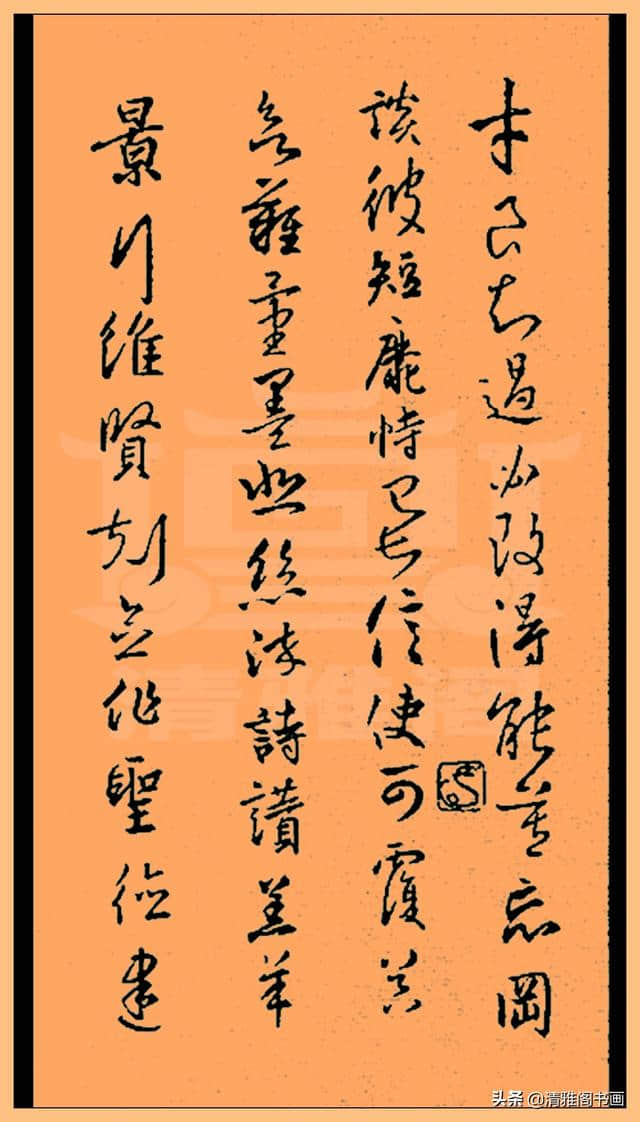 才良知過必改得能莫忘罔
談彼短靡恃己長信使可覆器
欲難量墨悲絲染詩讚羔羊
景行維賢剋念作聖德建
清雅阁
头条 @清雅阁书画